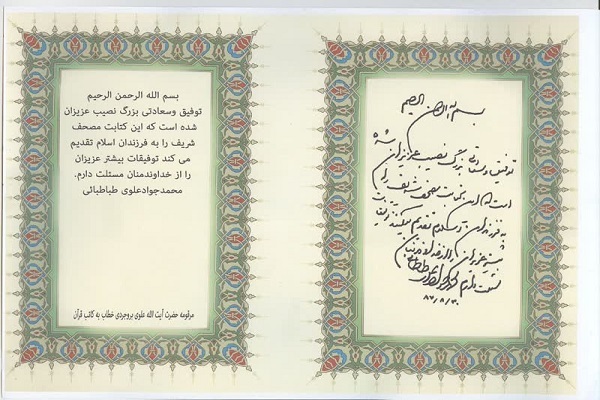 بسم الله الرحمن الرحیم
توفیق وسعادتی بزرگ نصیب عزیزان
شده است که این کتابت مصحف
شریف را به فرزندان اسلام تقدیم
می کند توفیقات بیشتر عزیزان
را از خداوندمنان مسئلت دارم.
محمدجوادعلوی طباطبائی
مرقومه حضرت آیت الله علوی بروجردی خطاب به کاتب قرآن
بسم الله الرحمن الرحیم
توفیق و سعادتی بزرگ نصیب عزیزان شده
است که این کتابت مصحف شریف را
به فرزندان اسلام تقدیم میکند توفیقات
بیشتر عزیزان را از خداوند منان
مسئلت دارم